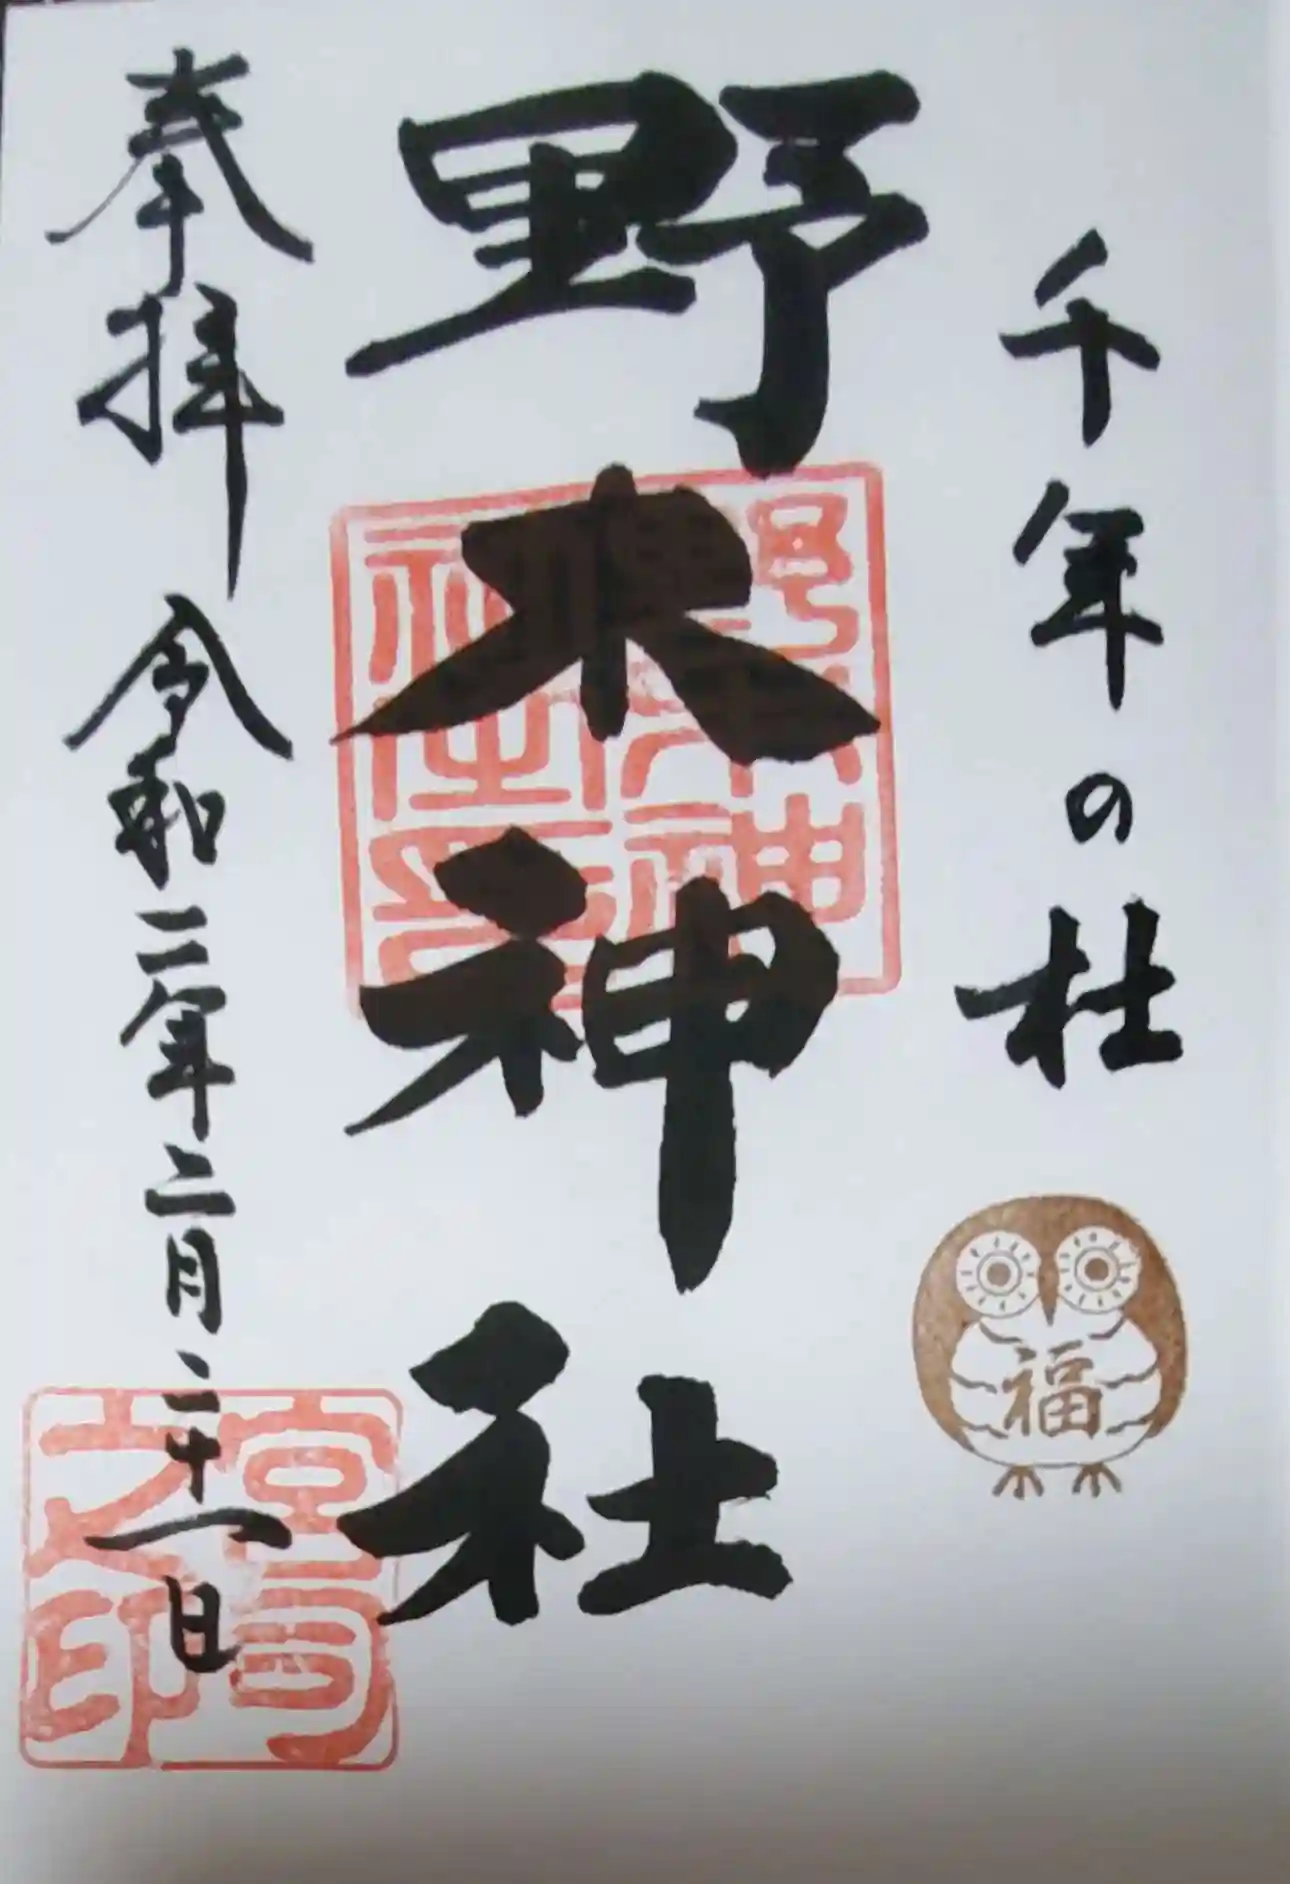 千年の杜
福
野木神社
奉拝 令和二年二月二十一日
宮司之印